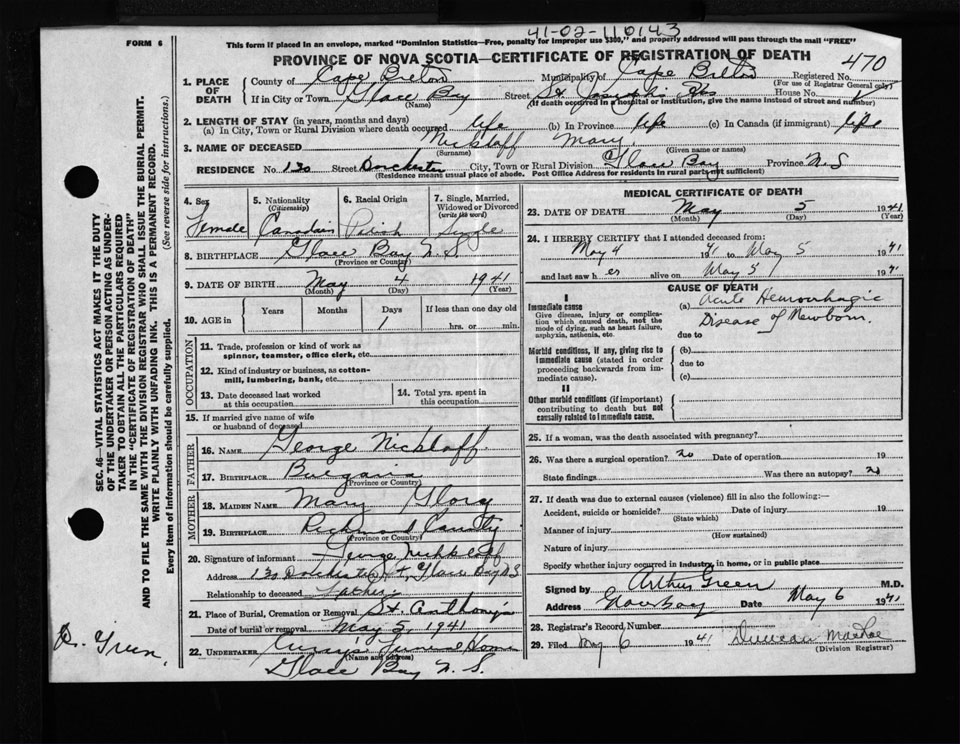 41-02-110143
FORM 6
This form if placed in an envelope, marked "Dominion Statistics—Free, penalty for improper use $300," and properly addressed will pass through the mail "FREE"
PROVINCE OF NOVA SCOTIA—CERTIFICATE OF REGISTRATION OF DEATH
470
1. PLACE OF DEATH
County of Cape Breton Municipality of Cape Breton Registered No.
(For use of Registrar General only)
If in City or Town Glace Bay Street St. Joseph's House No.
(Name) (If death occurred in a hospital or institution, give the name instead of street and number)
2. LENGTH OF STAY (in years, months and days)
(a) In City, Town or Rural Division where death occurred life (b) In Province life (c) In Canada (if immigrant) life
3. NAME OF DECEASED Nickloff Mary
(Surname) (Given name or names)
RESIDENCE No. 130 Street Dorchester City, Town or Rural Division Glace Bay Province N.S
(Residence means usual place of abode. Post Office Address for residents in rural parts not sufficient)
4. Sex Female
5. Nationality (Citizenship) Canadian
6. Racial Origin
7. Single, Married, Widowed or Divorced (write the word) Single
8. BIRTHPLACE Glace Bay N.S.
(Province or Country)
9. DATE OF BIRTH May 4 1941
(Month) (Day) (Year)
10. AGE in Years Months Days 1 If less than one day old hrs. or min.
OCCUPATION
11. Trade, profession or kind of work as spinner, teamster, office clerk, etc.
12. Kind of industry or business, as cotton-mill, lumbering, bank, etc.
13. Date deceased last worked at this occupation
14. Total yrs. spent in this occupation
15. If married give name of wife or husband of deceased
FATHER
16. NAME George Nickloff
17. BIRTHPLACE
(Province or Country)
MOTHER
18. MAIDEN NAME Mary Glory
19. BIRTHPLACE Richmond County
(Province or Country)
20. Signature of informant George
Address 130 Dorchester St, Glace Bay N.S
Relationship to deceased Father
21. Place of Burial, Cremation or Removal St. Anthony's
Date of burial or removal May 5, 1941
22. UNDERTAKER Curry's Funeral Home
(Name and address)
Glace Bay N.S.
MEDICAL CERTIFICATE OF DEATH
23. DATE OF DEATH May 5 1941
(Month) (Day) (Year)
24. I HEREBY CERTIFY that I attended deceased from:
May 4 1941 to May 5 1941
and last saw her alive on May 5 1941
CAUSE OF DEATH
I
Immediate cause
Give disease, injury or complication which caused death, not the mode of dying, such as heart failure, asphyxia, asthenia, etc.
(a) Acute Hemorrhagic
Disease of Newborn.
due to
Morbid conditions, if any, giving rise to immediate cause (stated in order proceeding backwards from immediate cause).
(b)
due to
(c)
II
Other morbid conditions (if important) contributing to death but not causally related to immediate cause.
25. If a woman, was the death associated with pregnancy?
26. Was there a surgical operation? no Date of operation 19
State findings Was there an autopsy? no
27. If death was due to external causes (violence) fill in also the following:—
Accident, suicide or homicide? Date of injury 19
(State which)
Manner of injury
(How sustained)
Nature of injury
Specify whether injury occurred in industry, in home, or in public place
Signed by Arthur Green M.D.
Address Glace Bay Date May 6 1941
28. Registrar's Record, Number
29. Filed May 6 1941 Duncan MacRae
(Division Registrar)
SEC. 46—VITAL STATISTICS ACT MAKES IT THE DUTY OF THE UNDERTAKER OR PERSON ACTING AS UNDERTAKER TO OBTAIN ALL THE PARTICULARS REQUIRED IN THE "CERTIFICATE OF REGISTRATION OF DEATH" AND TO FILE THE SAME WITH THE DIVISION REGISTRAR WHO SHALL ISSUE THE BURIAL PERMIT.
WRITE PLAINLY WITH UNFADING INK. THIS IS A PERMANENT RECORD.
Every item of Information should be carefully supplied. (See reverse side for instructions.)
Dr. Green.